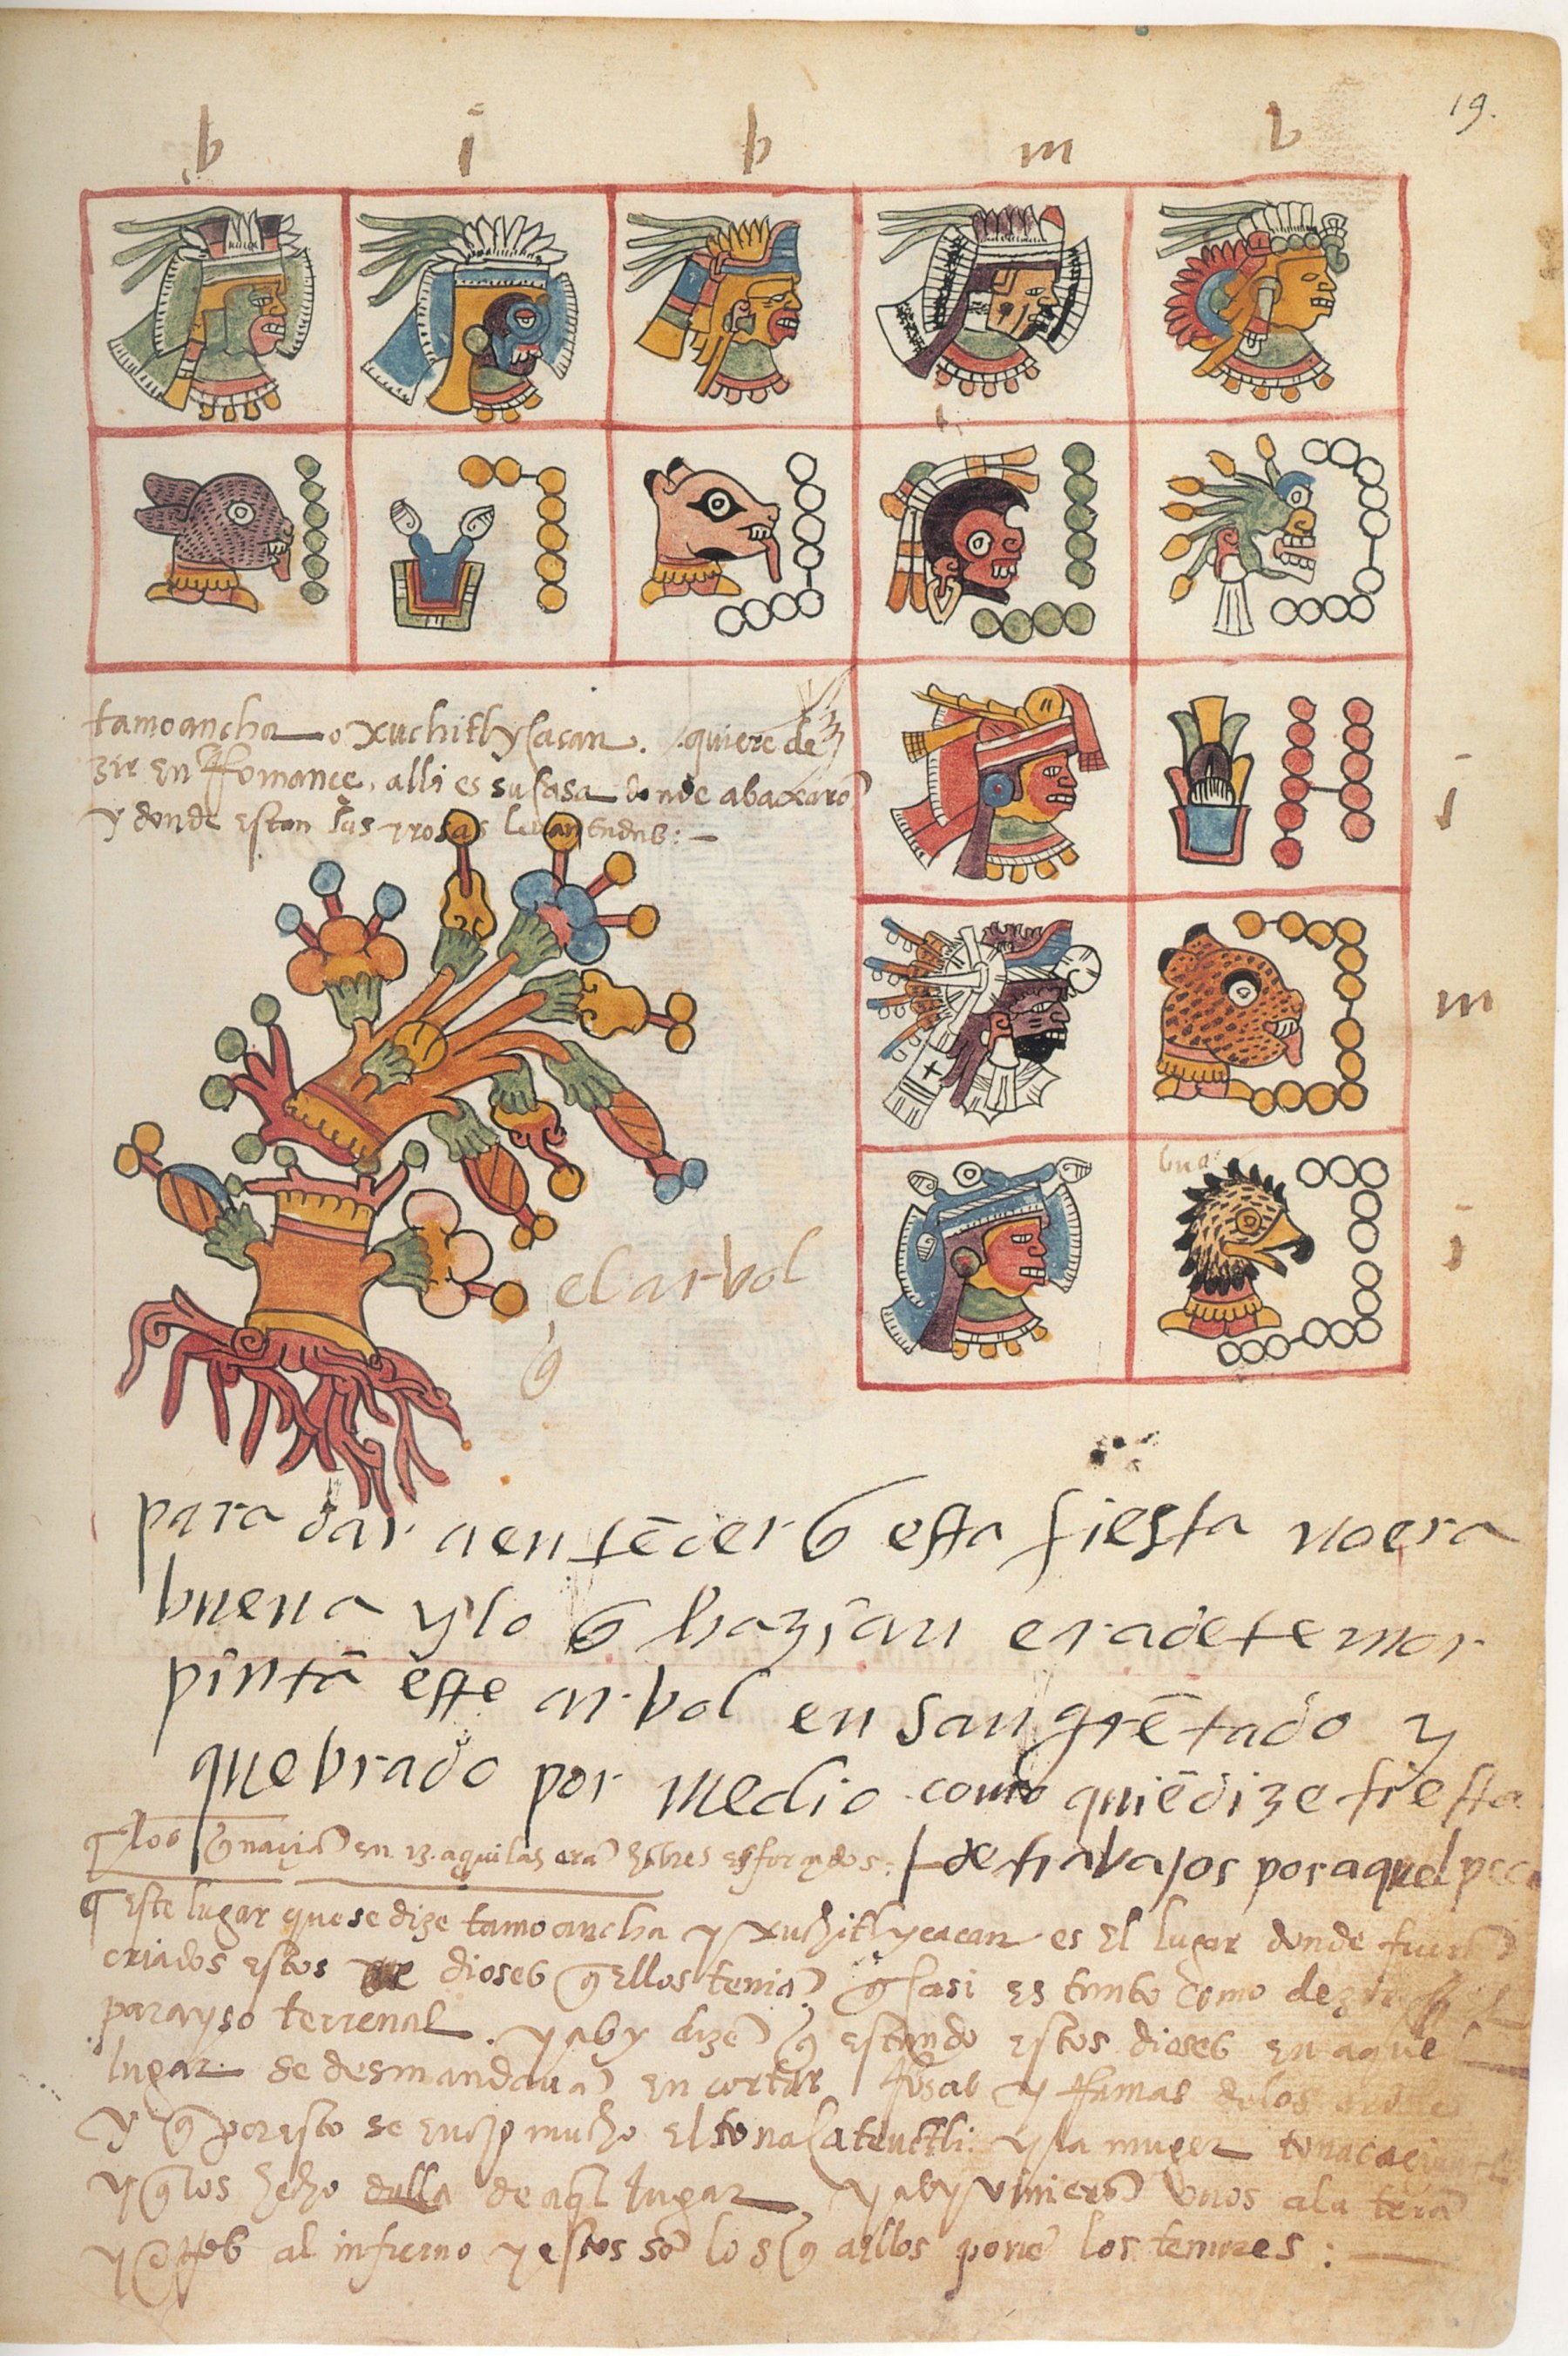 19.
b i b m b
tamoancha o xuchitlycacan. quiere de
zir en Romance, alli es su casa donde abaxarō
y donde estan sus rrosas levantadas:—
i
m
i
el arbol
para dar a entēder q̄ esta fiesta no era
buena y lo q̄ hazian era de temor
pintā este arbol ensangrētado y
quebrado por medio como quiē dize fiesta
de trabajos por aquel pec
los q̄ naciā en 13. aguilas erā
este lugar que se dize tamoancha y xuchitlycacan es el lugar donde fuerō
criados estos dioses q̄ ellos teniā q̄ casi es tanto como dezir
parayso terrenal. y asy dizē q̄ estando estos dioses en aquel
lugar se desmandavā en cortar rosas y rramas de los
y q̄ por esto se enojo mucho el tonacateuctli y la muger
y q̄ los hecho dalla de aq̄l lugar y asy vinierō unos a la terā
y otros al infierno y estos sō los q̄ a ellos ponē los temores:—